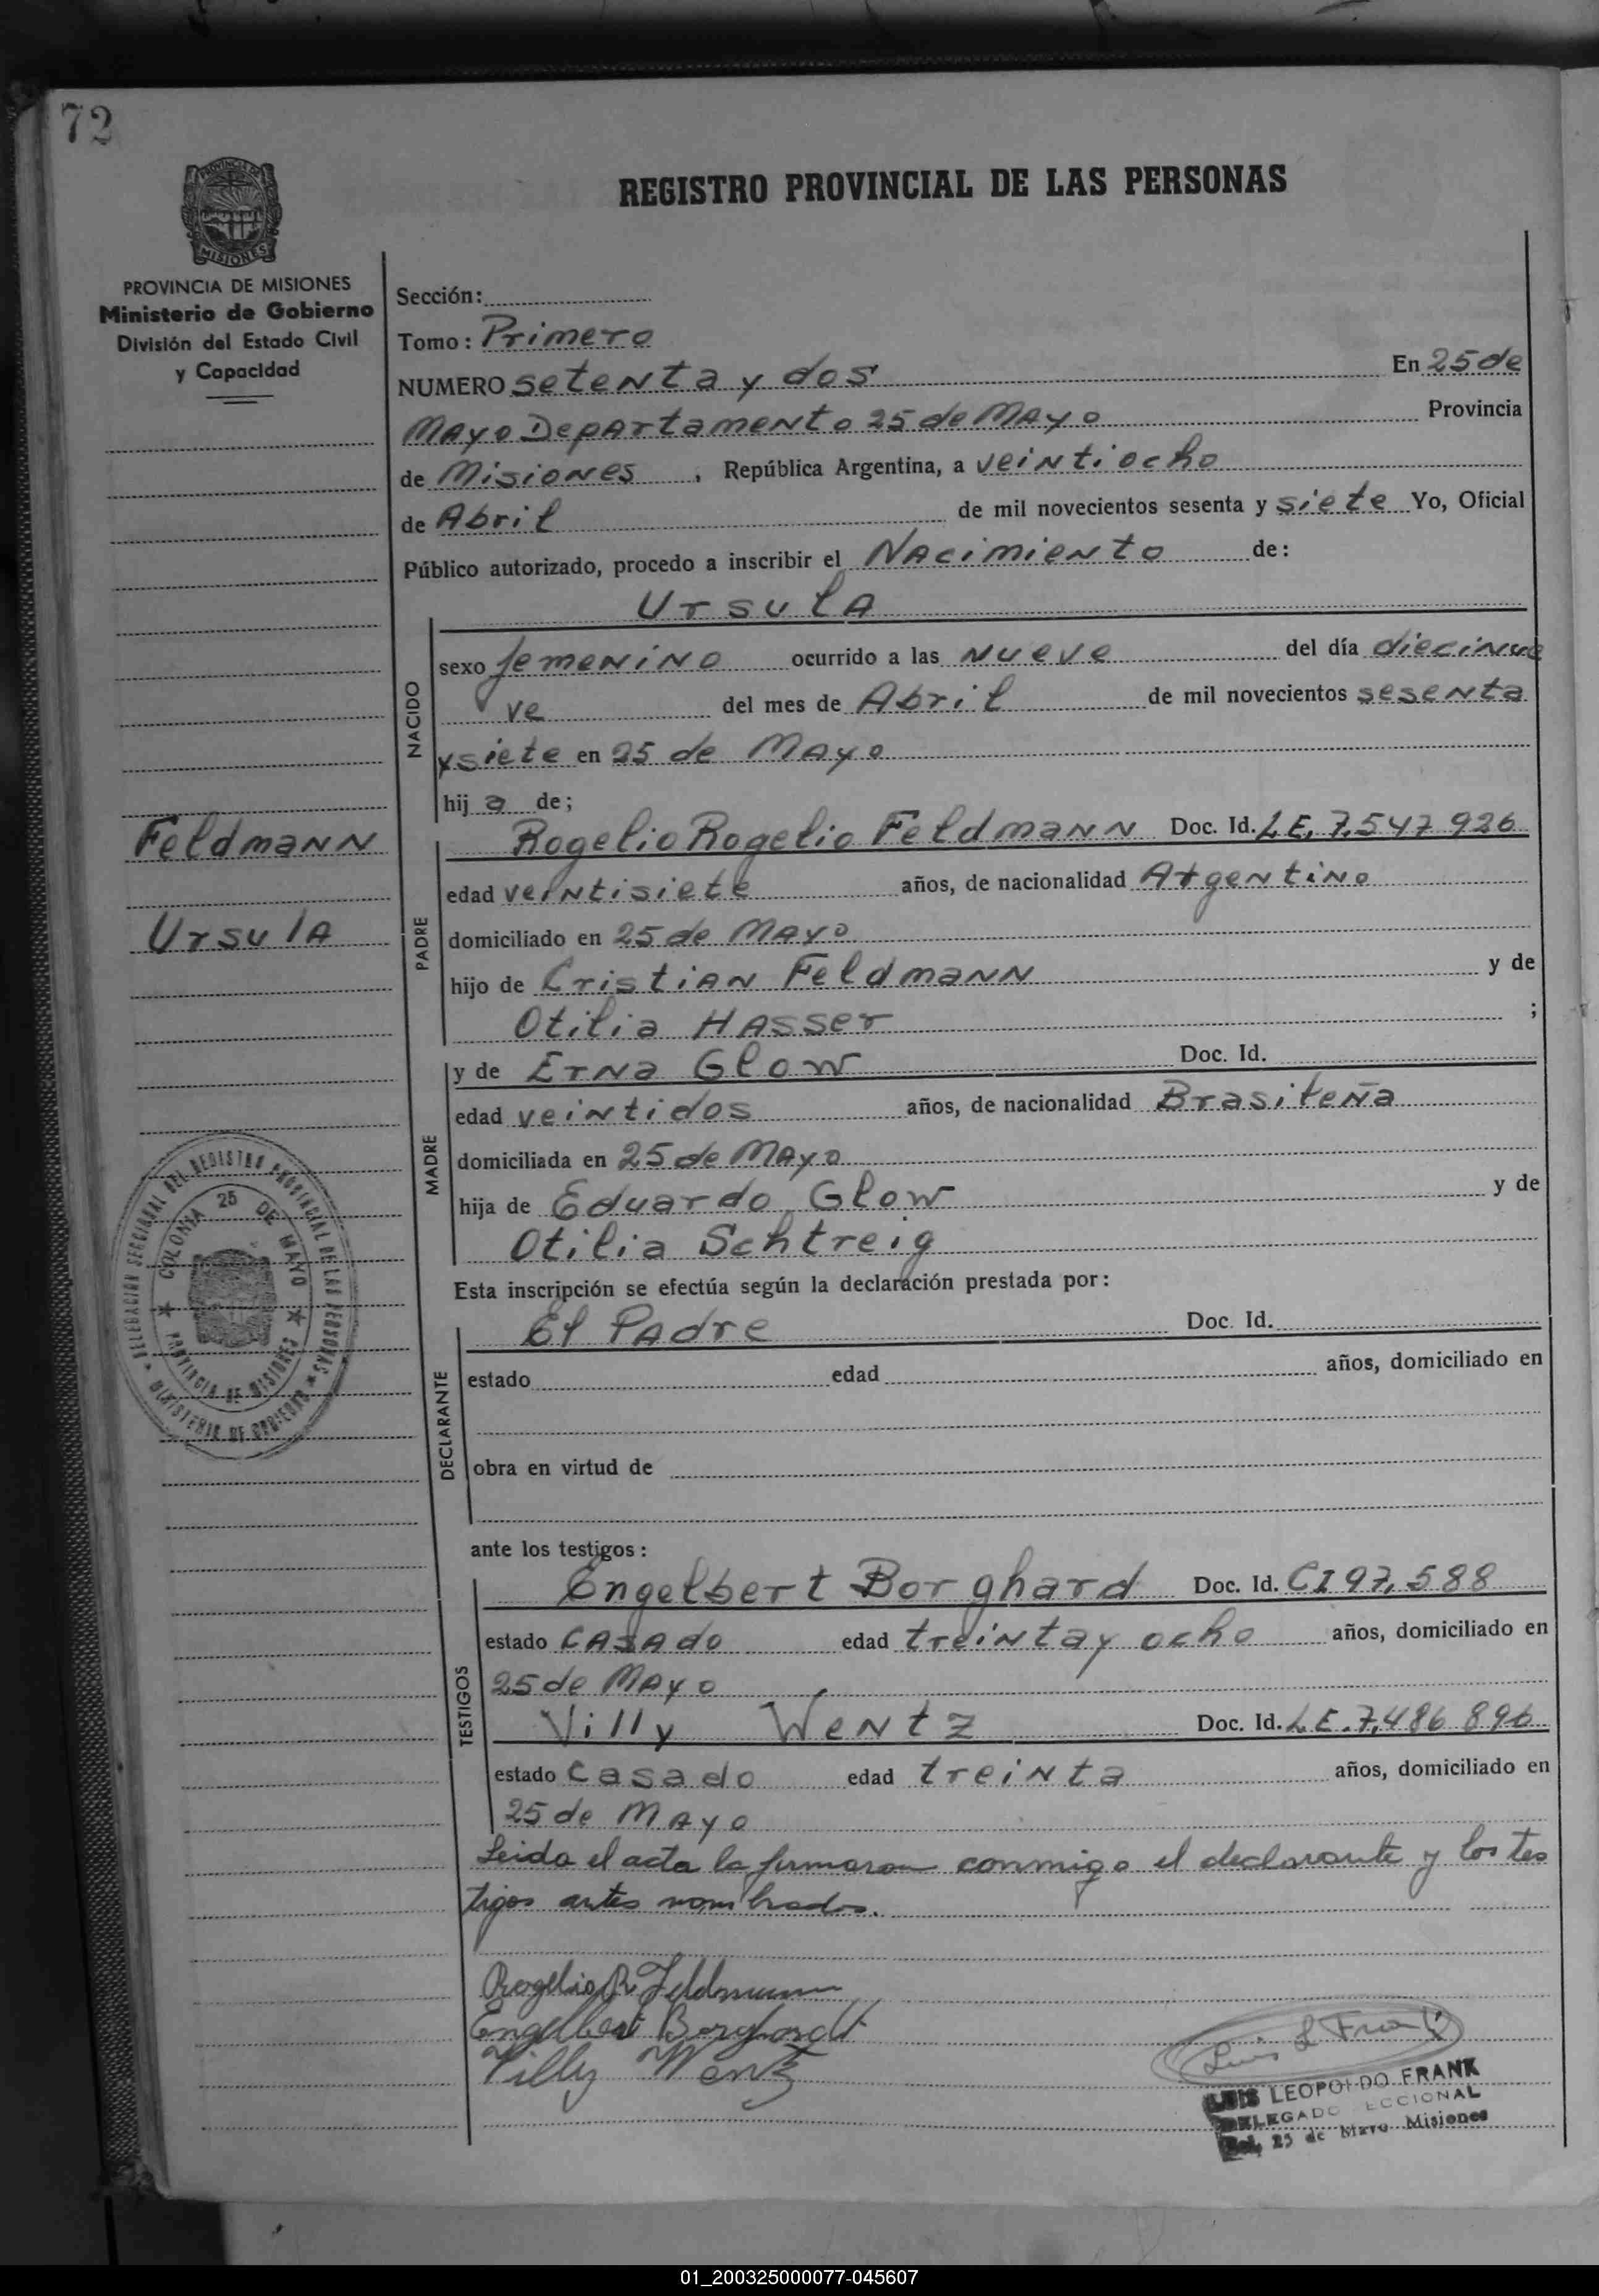 72
REGISTRO PROVINCIAL DE LAS PERSONAS
PROVINCIA DE MISIONES
MISIONES
PROVINCIA DE MISIONES
Ministerio de Gobierno
División del Estado Civil
y Capacidad
Sección:
Tomo: Primero
NUMERO setenta y dos En 25 de
Mayo Departamento 25 de Mayo Provincia
de Misiones, República Argentina, a veintiocho
de Abril de mil novecientos sesenta y siete Yo, Oficial
Público autorizado, procedo a inscribir el Nacimiento de:
Ursula
NACIDO
sexo femenino ocurrido a las nueve del día diecinue
ve del mes de Abril de mil novecientos sesenta
y siete en 25 de Mayo
hij a de;
Feldmann
Ursula
PADRE
Rogelio Rogelio Feldmann Doc. Id. LE, 7.547 926
edad veintisiete años, de nacionalidad Argentino
domiciliado en 25 de Mayo
hijo de Cristian Feldmann y de
Otilia Hasser ;
MADRE
y de Erna Glow Doc. Id.
edad veintidos años, de nacionalidad Brasileña
domiciliada en 25 de Mayo
hija de Eduardo Glow y de
Otilia Schtreig
DELEGACION SECCIONAL DEL REGISTRO PROVINCIAL DE LAS PERSONAS
MINISTERIO DE GOBIERNO
COLONIA 25 DE MAYO
PROVINCIA DE MISIONES
Esta inscripción se efectúa según la declaración prestada por:
DECLARANTE
El Padre Doc. Id.
estado edad años, domiciliado en
obra en virtud de
ante los testigos:
TESTIGOS
Engelbert Borghard Doc. Id. CI 97,588
estado casado edad treinta y ocho años, domiciliado en
25 de Mayo
Villy Wentz Doc. Id. LE. 7,486 896
estado casado edad treinta años, domiciliado en
25 de Mayo
Leida el acta la firmaron conmigo el declarante y los tes
tigos antes nombrados.
Rogelio R Feldmann
Engelbert Borghardt
Villy Wentz
Luis L Frank
LUIS LEOPOLDO FRANK
DELEGADO SECCIONAL
Col. 25 de Mayo Misiones
01_200325000077-045607